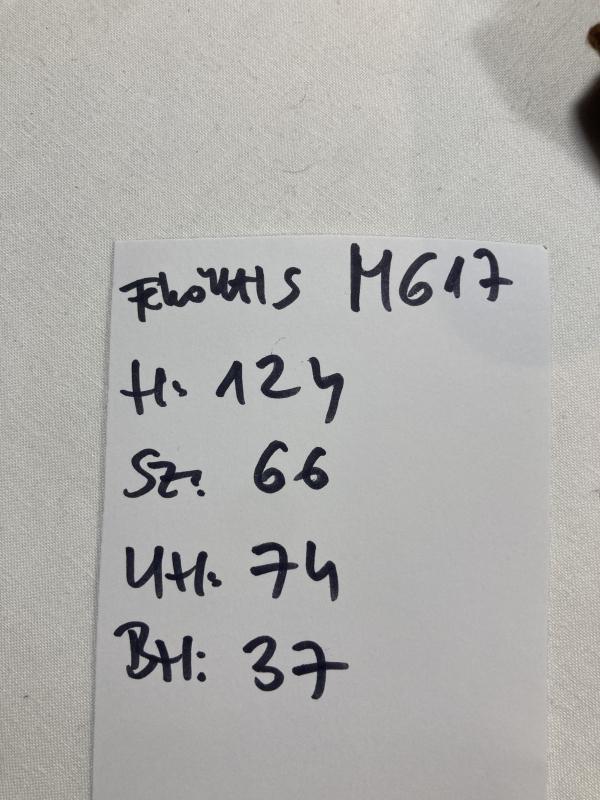 Fekő UTTIS M617
H: 124
SZ: 66
UH: 74
BH: 37